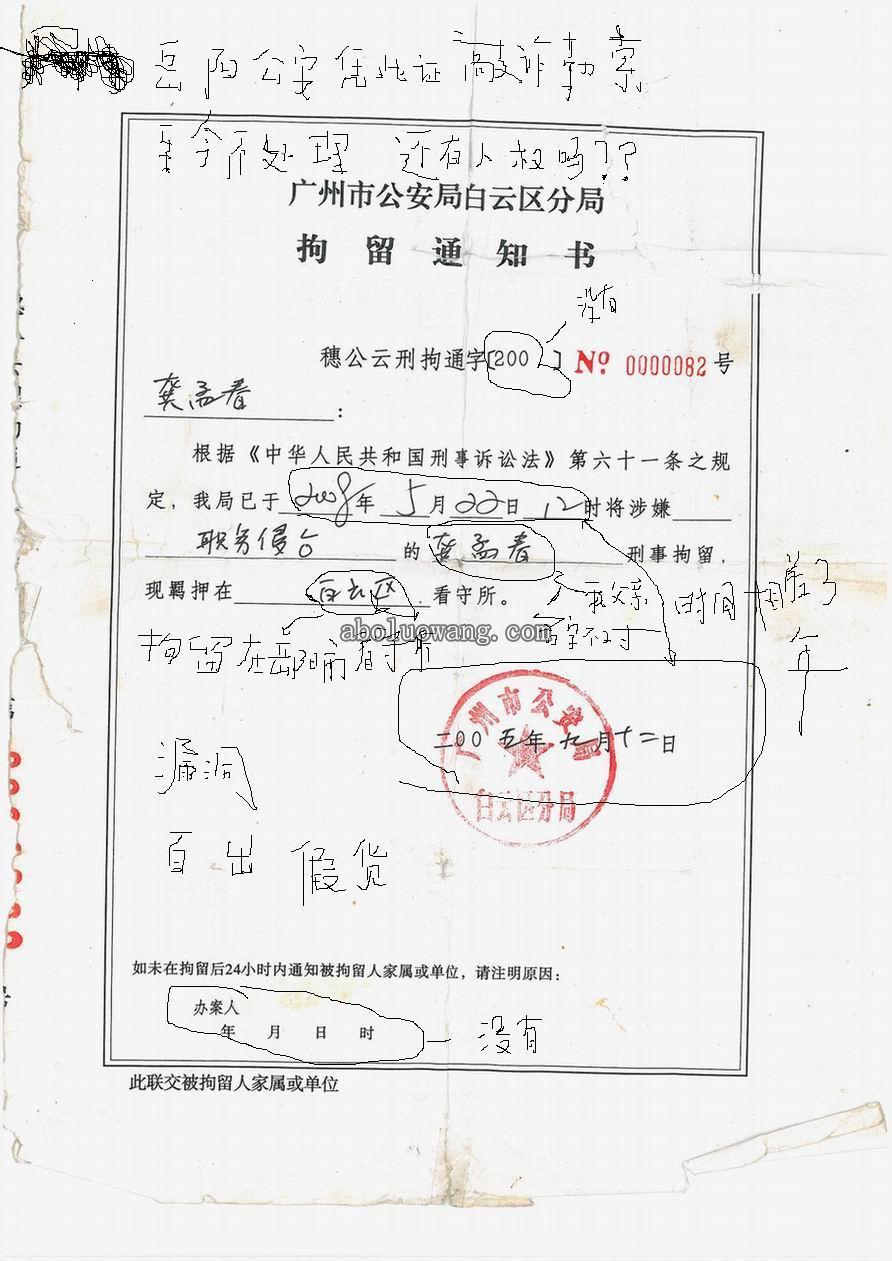 岳阳公安凭此证敲诈勒索
至今不处理 还有人权吗??
广州市公安局白云区分局
拘留通知书
没有
穗公云刑拘通字[200 ] № 0000082号
龚孟春:
根据《中华人民共和国刑事诉讼法》第六十一条之规
定,我局已于2008年5月22日12时将涉嫌
职务侵占的龚孟春刑事拘留,
现羁押在白云区看守所。
我父亲
名字不对
时间相差了
年
拘留在岳阳市看守所
aboluowang.com
广州市公安局
二00五年九月十二日
白云区分局
漏洞
百出 假货
如未在拘留后24小时内通知被拘留人家属或单位,请注明原因:
办案人
年 月 日 时
没有
此联交被拘留人家属或单位